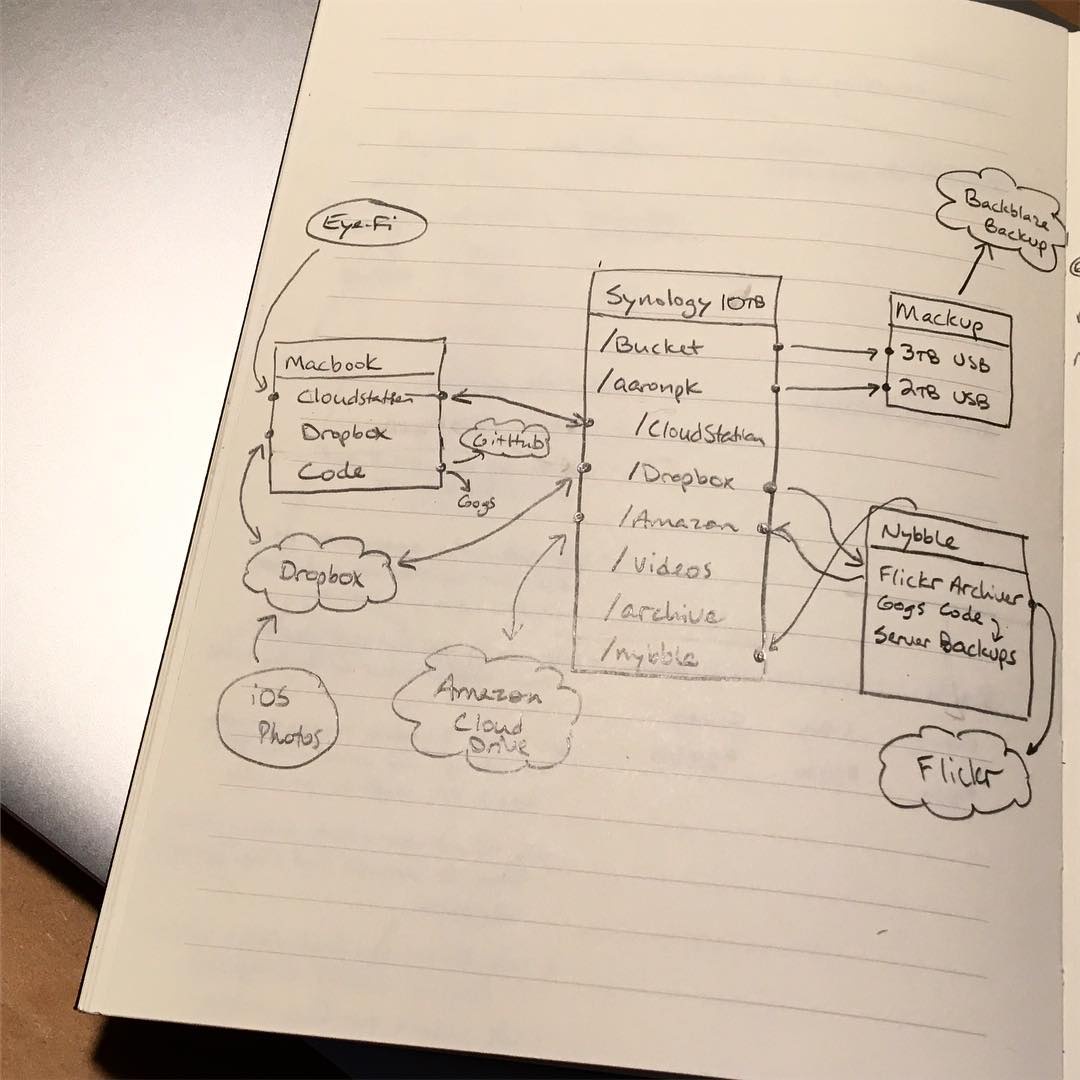 Eye-Fi
Macbook
Cloudstation
Dropbox
Code
GitHub
Gogs
Dropbox
iOS
Photos
Amazon
Cloud
Drive
Synology 10TB
/Bucket
/aaronpk
/CloudStation
/Dropbox
/Amazon
/videos
/archive
/nybble
Backblaze
Backup
Mackup
3TB USB
2TB USB
Nybble
Flickr Archiver
Gogs Code
Server Backups
Flickr